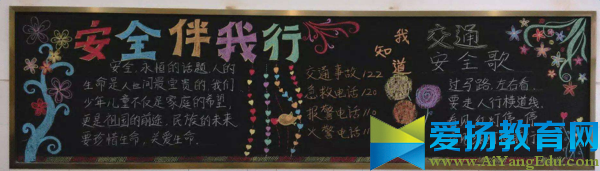 安全伴我行
安全,永恒的话题,人的
生命是人世间最宝贵的,我们
少年儿童不仅是家庭的希望,
更是祖国的前途,民族的未来
要珍惜生命,关爱生命.
我
知
道
交通事故122
急救电话120
报警电话110
火警电话11
交通
安全歌
过马路,左右看,
要走人行横道线,
爱扬教育网
www.AiYangEdu.com